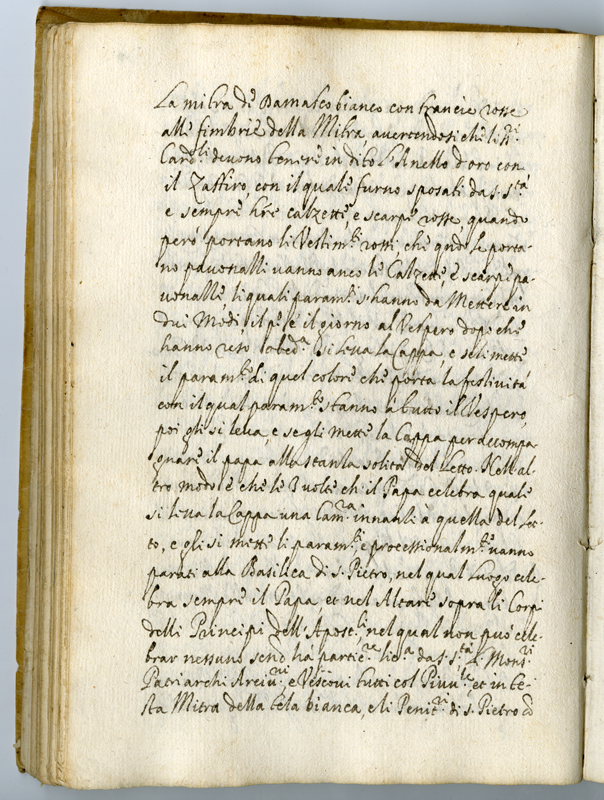 La mitra de Damasco bianco con francie rosse
alle fimbrie della Mitra avertendosi che li SS.ri
Card.li devono tenere in dito l'Anello d'oro con
il Zaffiro, con il quale furno sposati da S. S.tà
e sempre hre calzette, e scarpe rosse quando
però portano li Vestim.ti rossi, che qndo le porta-
no pavonalli vanno anco le Calzette, e scarpe pa-
vonalle, li quali param.ti s'hanno da Mettere in
dui Modi il p.o è il giorno al Vespero dopo che
hanno reso l'obed.a si leva la Cappa, e seli mette
il param.to di quel colore che porta la festività
con il qual param.to stanno à tutto il Vespero,
poi gli si leva, e se gli mette la Cappa per accompa-
gnare il papa alla stanza solita del Letto. Nell al-
tro modo è che le 3 volte ch' il Papa celebra quale
si leva la Cappa una Cam.ra innanzi à quella del Let-
to, e gli si mette li param.ti e processionalm.te vanno
parati alla Basilica di S. Pietro, nel qual Luogo cele-
bra sempre il Papa, et nel Altare sopra li Corpi
delli Principi dell' Apost.li nel qual non può cele-
brar nessuno senò ha partic.re lic.a da S. S.tà li Mons.ri
Patriarchi Arciv.vi e Vescovi tutti col Piuv.le, et in te-
sta Mitra della tela bianca, e li Penit.ri di S. Pietro cō